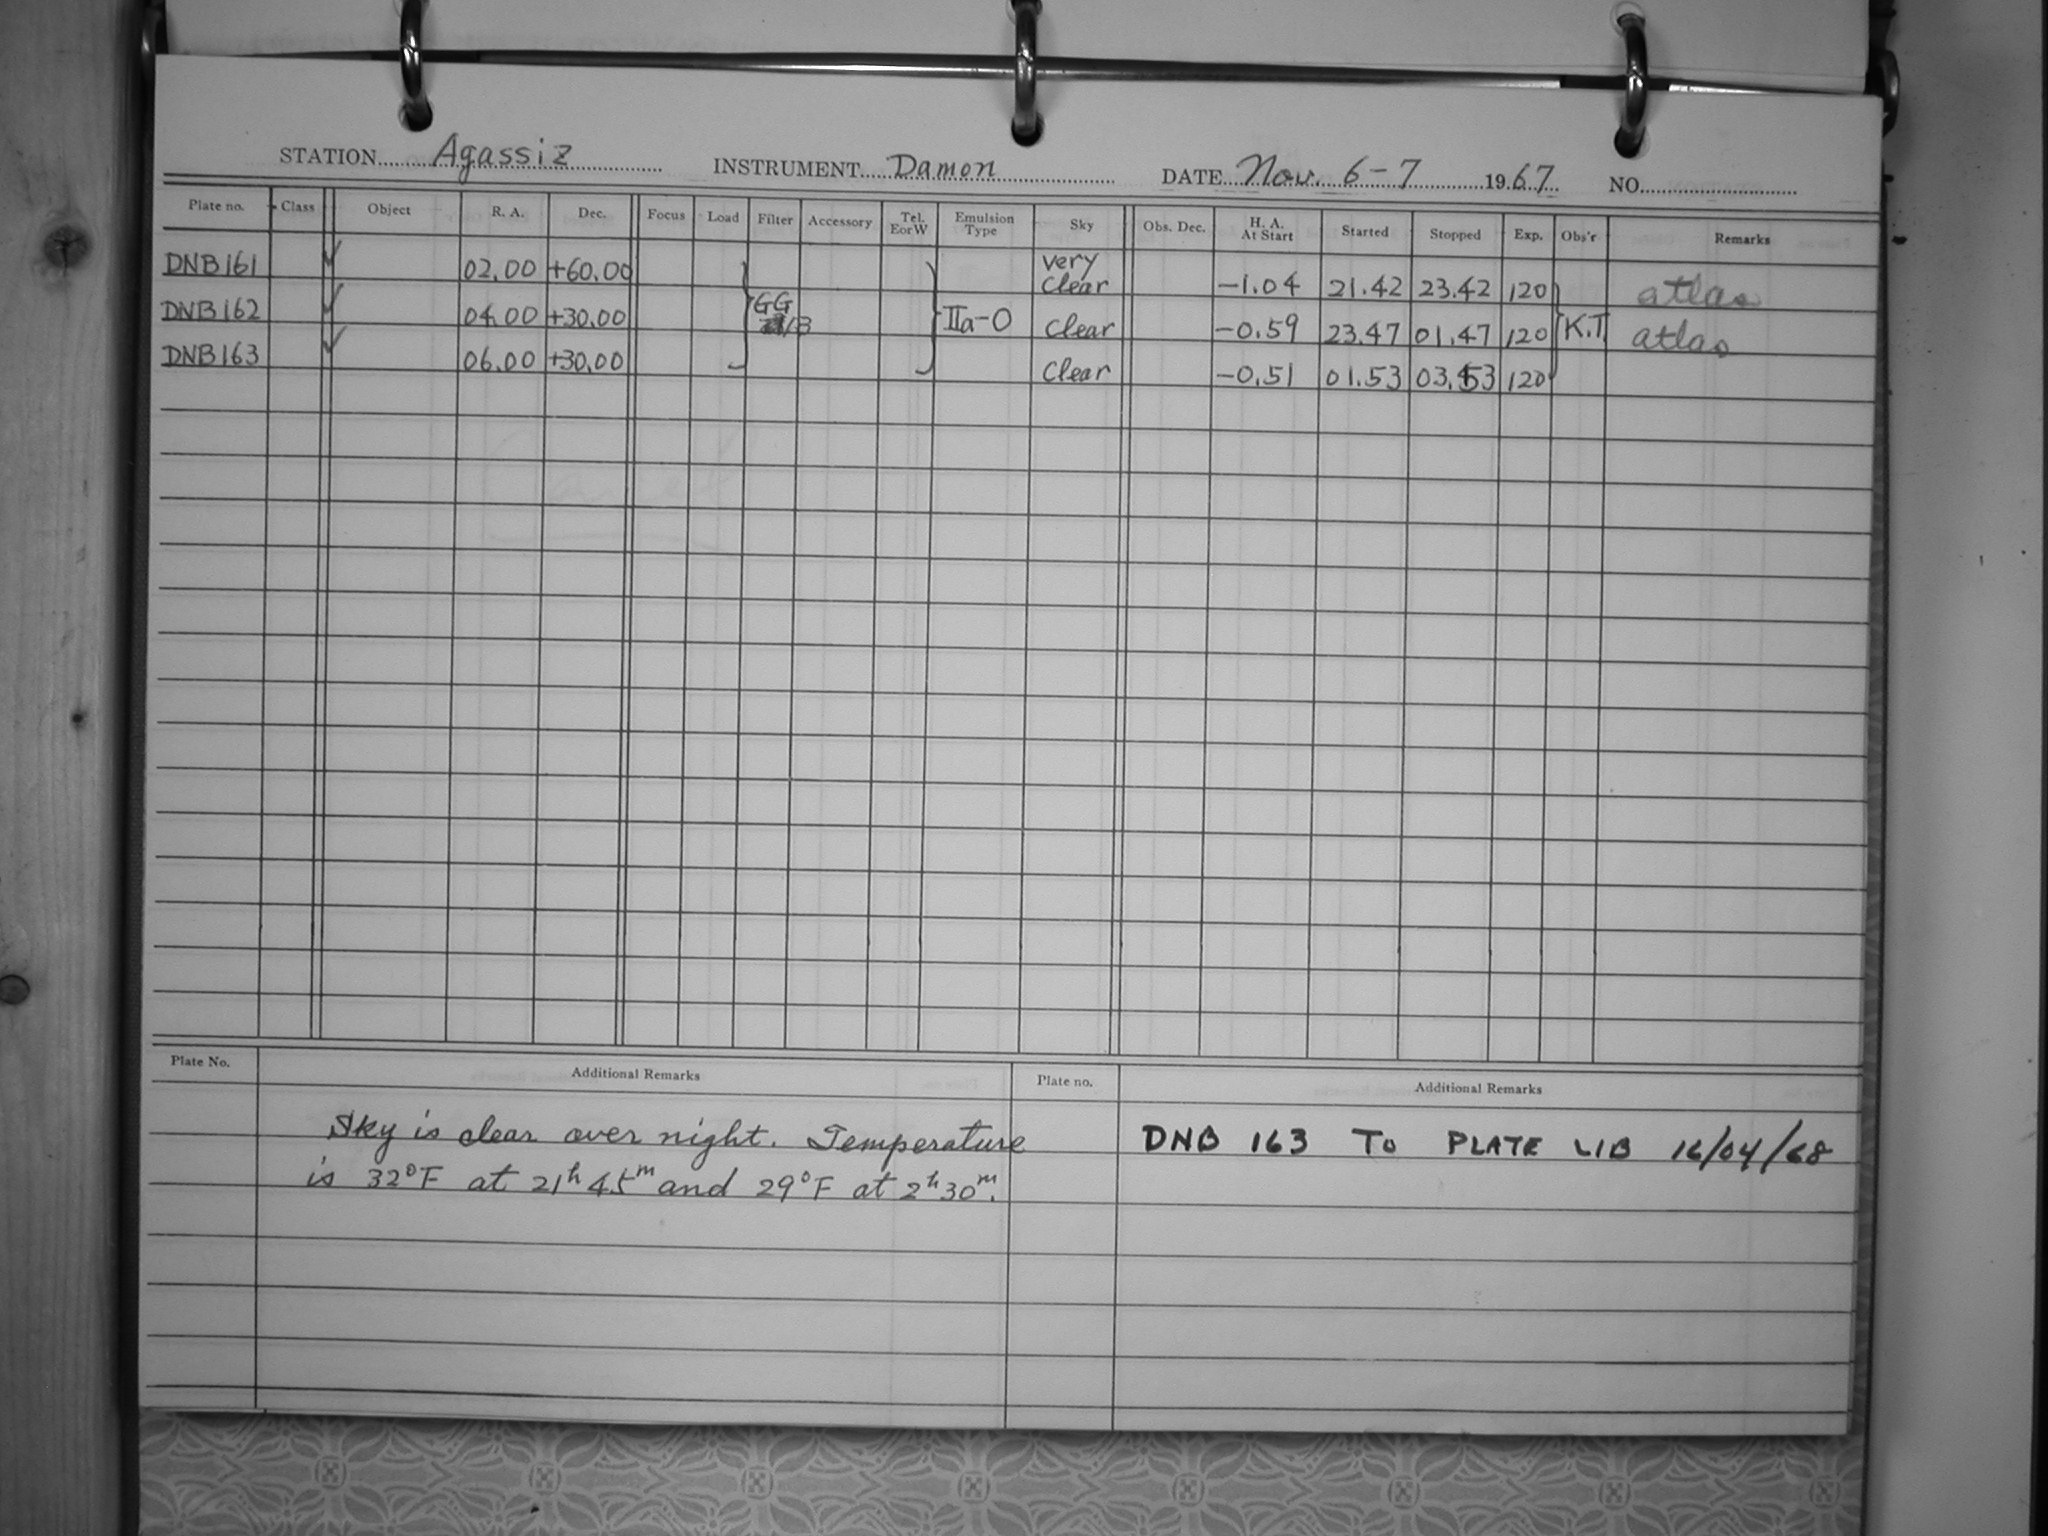 STATION Agassiz INSTRUMENT Damon DATE Nov. 6-7 1967 NO.
Plate no. Class Object R. A. Dec. Focus Load Filter Accessory Tel. E or W Emulsion Type Sky Obs. Dec. H. A. At Start Started Stopped Exp. Obs'r Remarks
DNB161 ✓ 02.00 +60.00 very clear -1.04 21.42 23.42 120 atlas
DNB162 ✓ 04.00 +30.00 GG 13 IIa-O clear -0.59 23.47 01.47 120 K.T atlas
DNB163 ✓ 06.00 +30.00 clear -0.51 01.53 03.53 120
Plate No. Additional Remarks Plate no. Additional Remarks
Sky is clear over night. Temperature
is 32°F at 21h 45m and 29°F at 2h 30m.
DNB 163 TO PLATE LIB 16/04/68